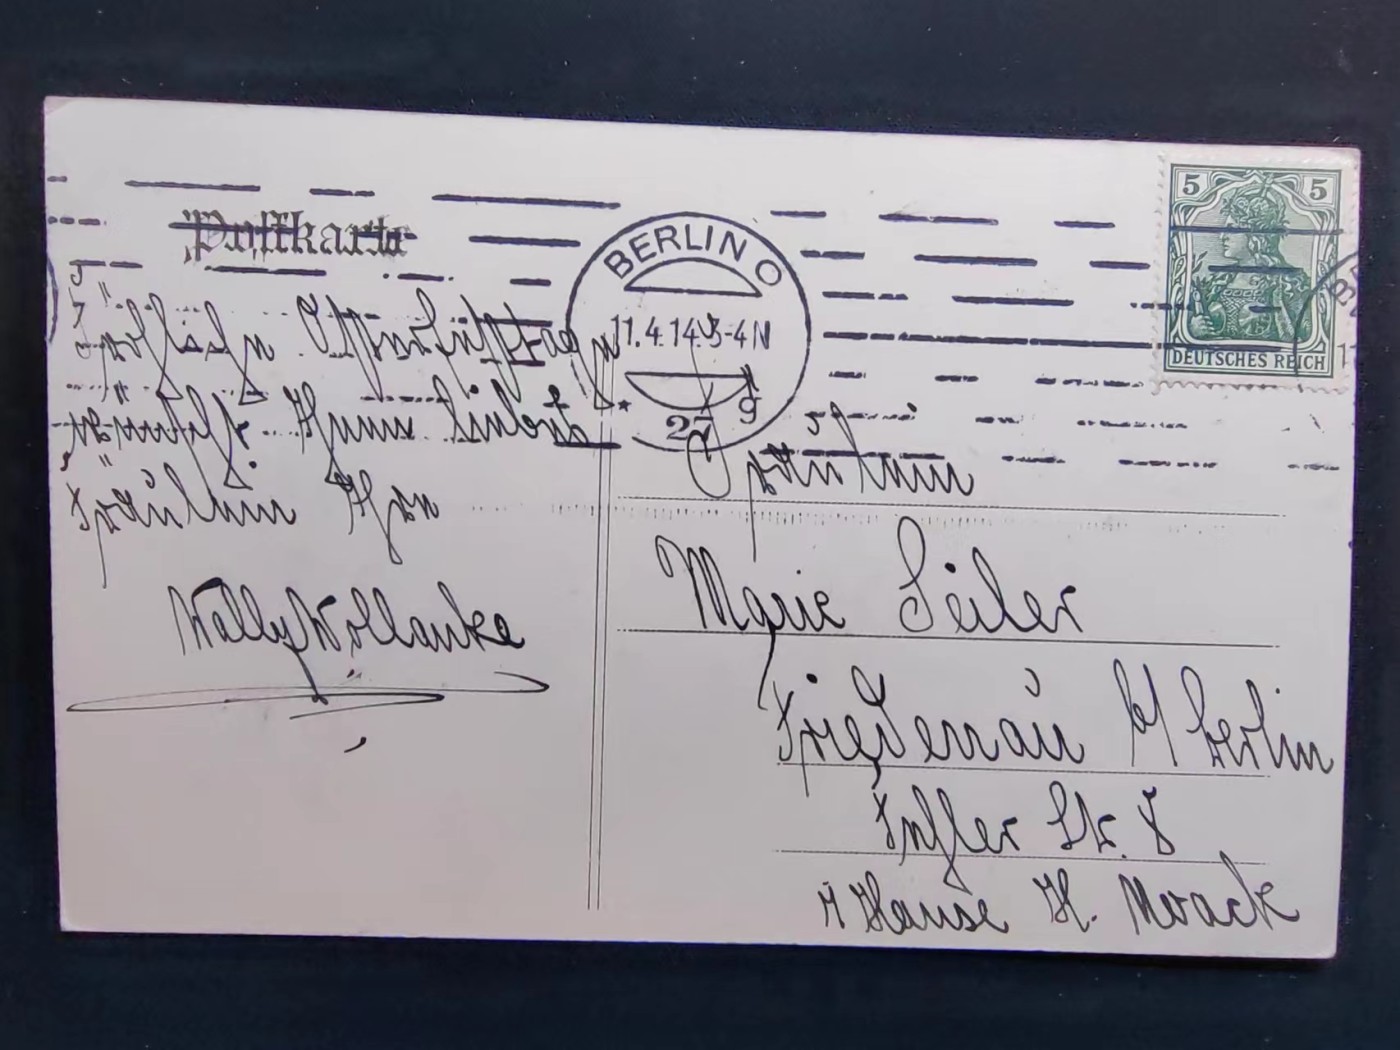 Postkarte
BERLIN O
11.4.14.3-4N
* 27 g
5 5
DEUTSCHES REICH
Fröhliche Osterfeiertage
wünscht Ihnen liebes
Fräulein Ihre
Wally Wollanke
Fräulein
Marie Seiler
Friedenau b/ Berlin
Str. 8
Hause H. Noack